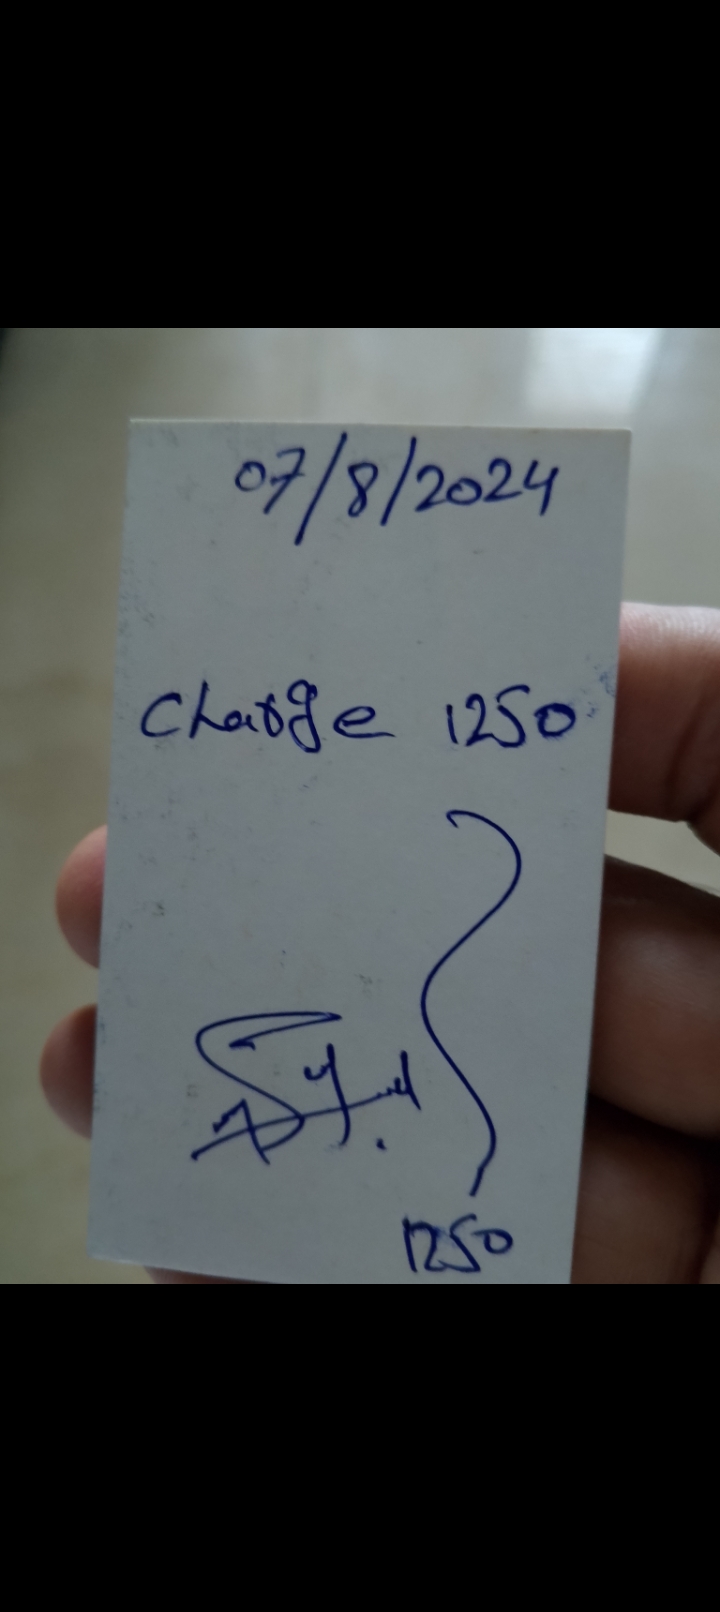 07/8/2024
Charge 1250
1250